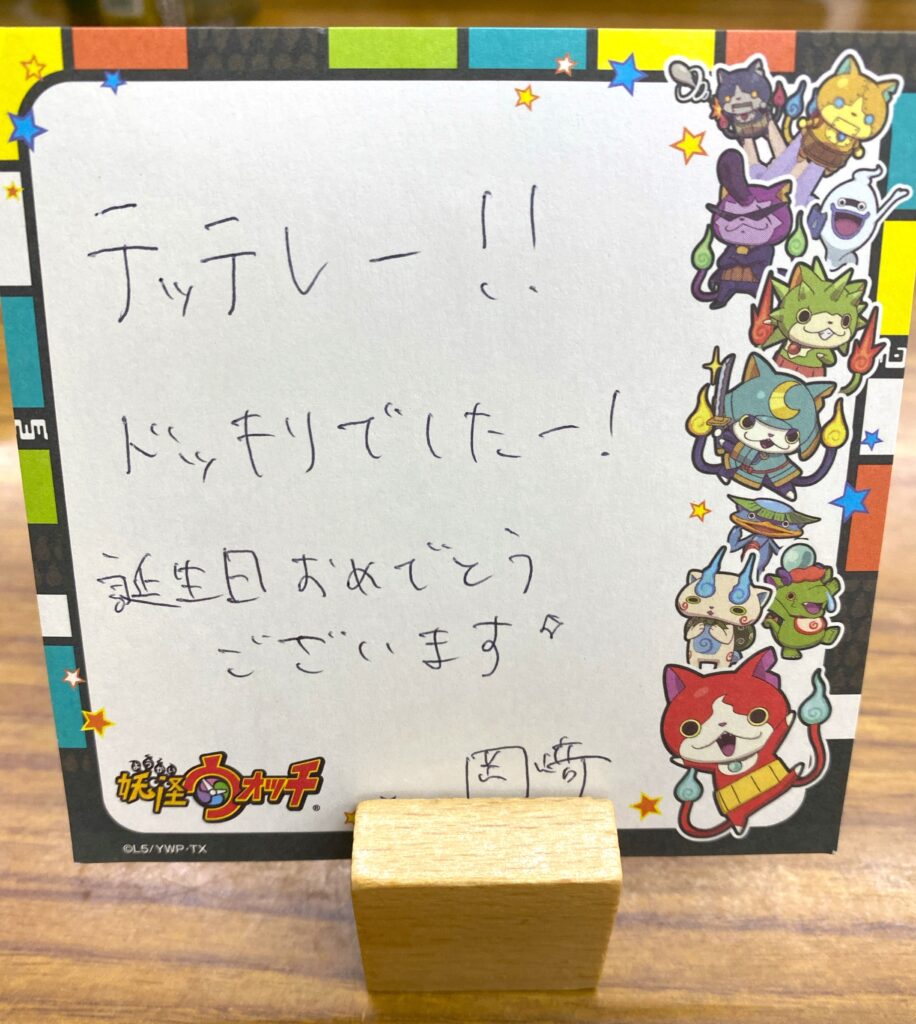 テッテレー!!
ドッキリでしたー!
誕生日おめでとう
ございます
岡崎
ようかい
妖怪ウォッチ®
©L5/YWP・TX